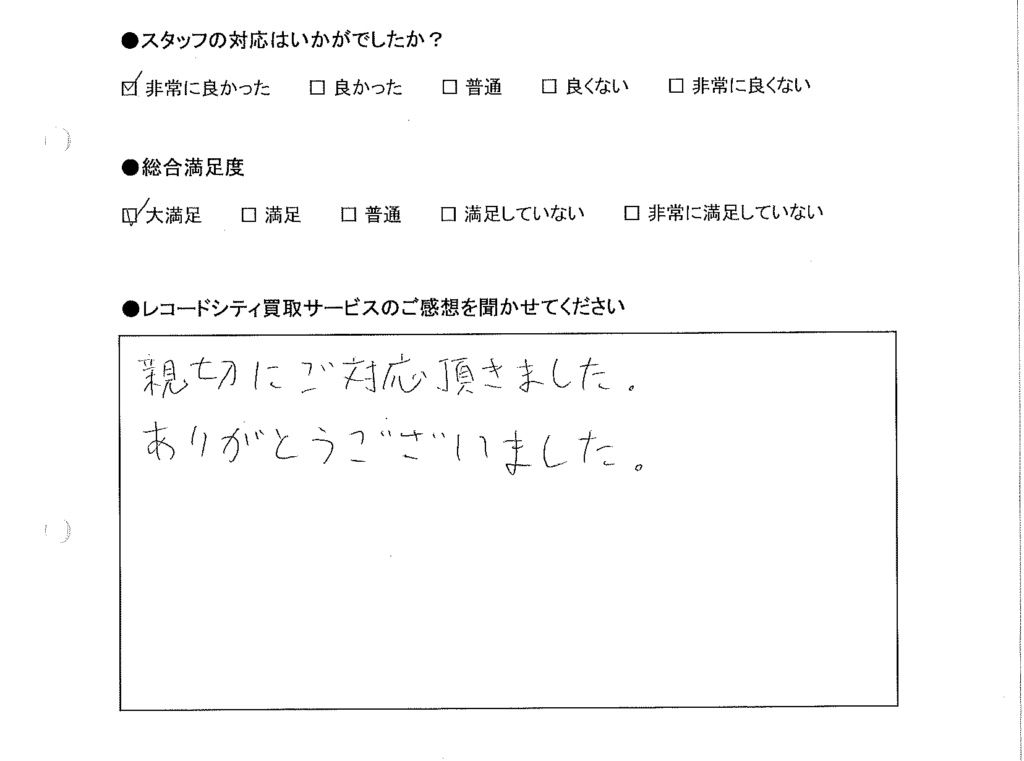 ●スタッフの対応はいかがでしたか？
☑ 非常に良かった □ 良かった □ 普通 □ 良くない □ 非常に良くない
●総合満足度
☑ 大満足 □ 満足 □ 普通 □ 満足していない □ 非常に満足していない
●レコードシティ買取サービスのご感想を聞かせてください
親切にご対応頂きました。
ありがとうございました。